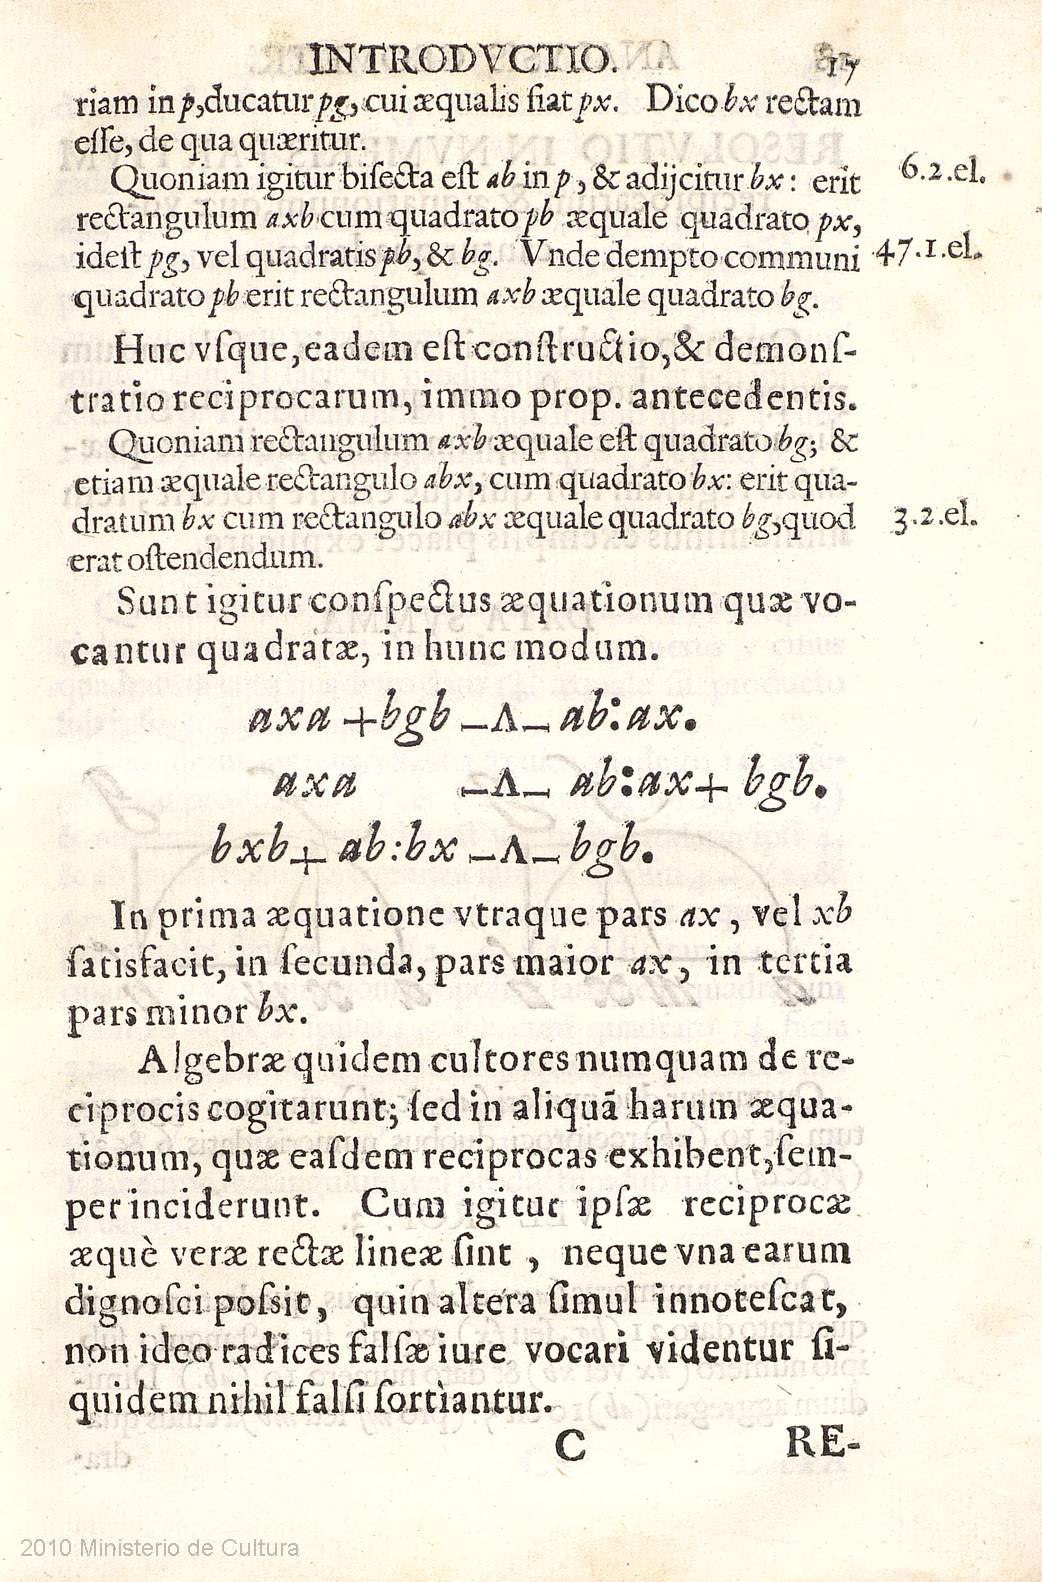 INTRODVCTIO. 17
riam in p, ducatur pg, cui æqualis fiat px. Dico bx rectam
esſe, de qua quæritur.
Quoniam igitur biſecta eſt ab in p, & adijcitur bx: erit 6.2.el.
rectangulum axb cum quadrato pb æquale quadrato px,
ideſt pg, vel quadratis pb, & bg. Vnde dempto communi 47.1.el.
quadrato pb erit rectangulum axb æquale quadrato bg.
Huc vſque, eadem eſt conſtructio, & demonſ-
tratio reciprocarum, immo prop. antecedentis.
Quoniam rectangulum axb æquale eſt quadrato bg; &
etiam æquale rectangulo abx, cum quadrato bx: erit qua-
dratum bx cum rectangulo abx æquale quadrato bg, quod 3.2.el.
erat oſtendendum.
Sunt igitur conſpectus æquationum quæ vo-
cantur quadratæ, in hunc modum.
axa + bgb _Λ_ ab:ax.
axa _Λ_ ab:ax + bgb.
bxb + ab:bx _Λ_ bgb.
In prima æquatione vtraque pars ax, vel xb
ſatisfacit, in ſecunda, pars maior ax, in tertia
pars minor bx.
Algebræ quidem cultores numquam de re-
ciprocis cogitarunt; ſed in aliquã harum æqua-
tionum, quæ eaſdem reciprocas exhibent, ſem-
per inciderunt. Cum igitur ipſæ reciprocæ
æquè veræ rectæ lineæ ſint, neque vna earum
dignoſci poſsit, quin altera ſimul innoteſcat,
non ideo radices falſæ iure vocari videntur ſi-
quidem nihil falſi ſortiantur.
C RE-
2010 Ministerio de Cultura